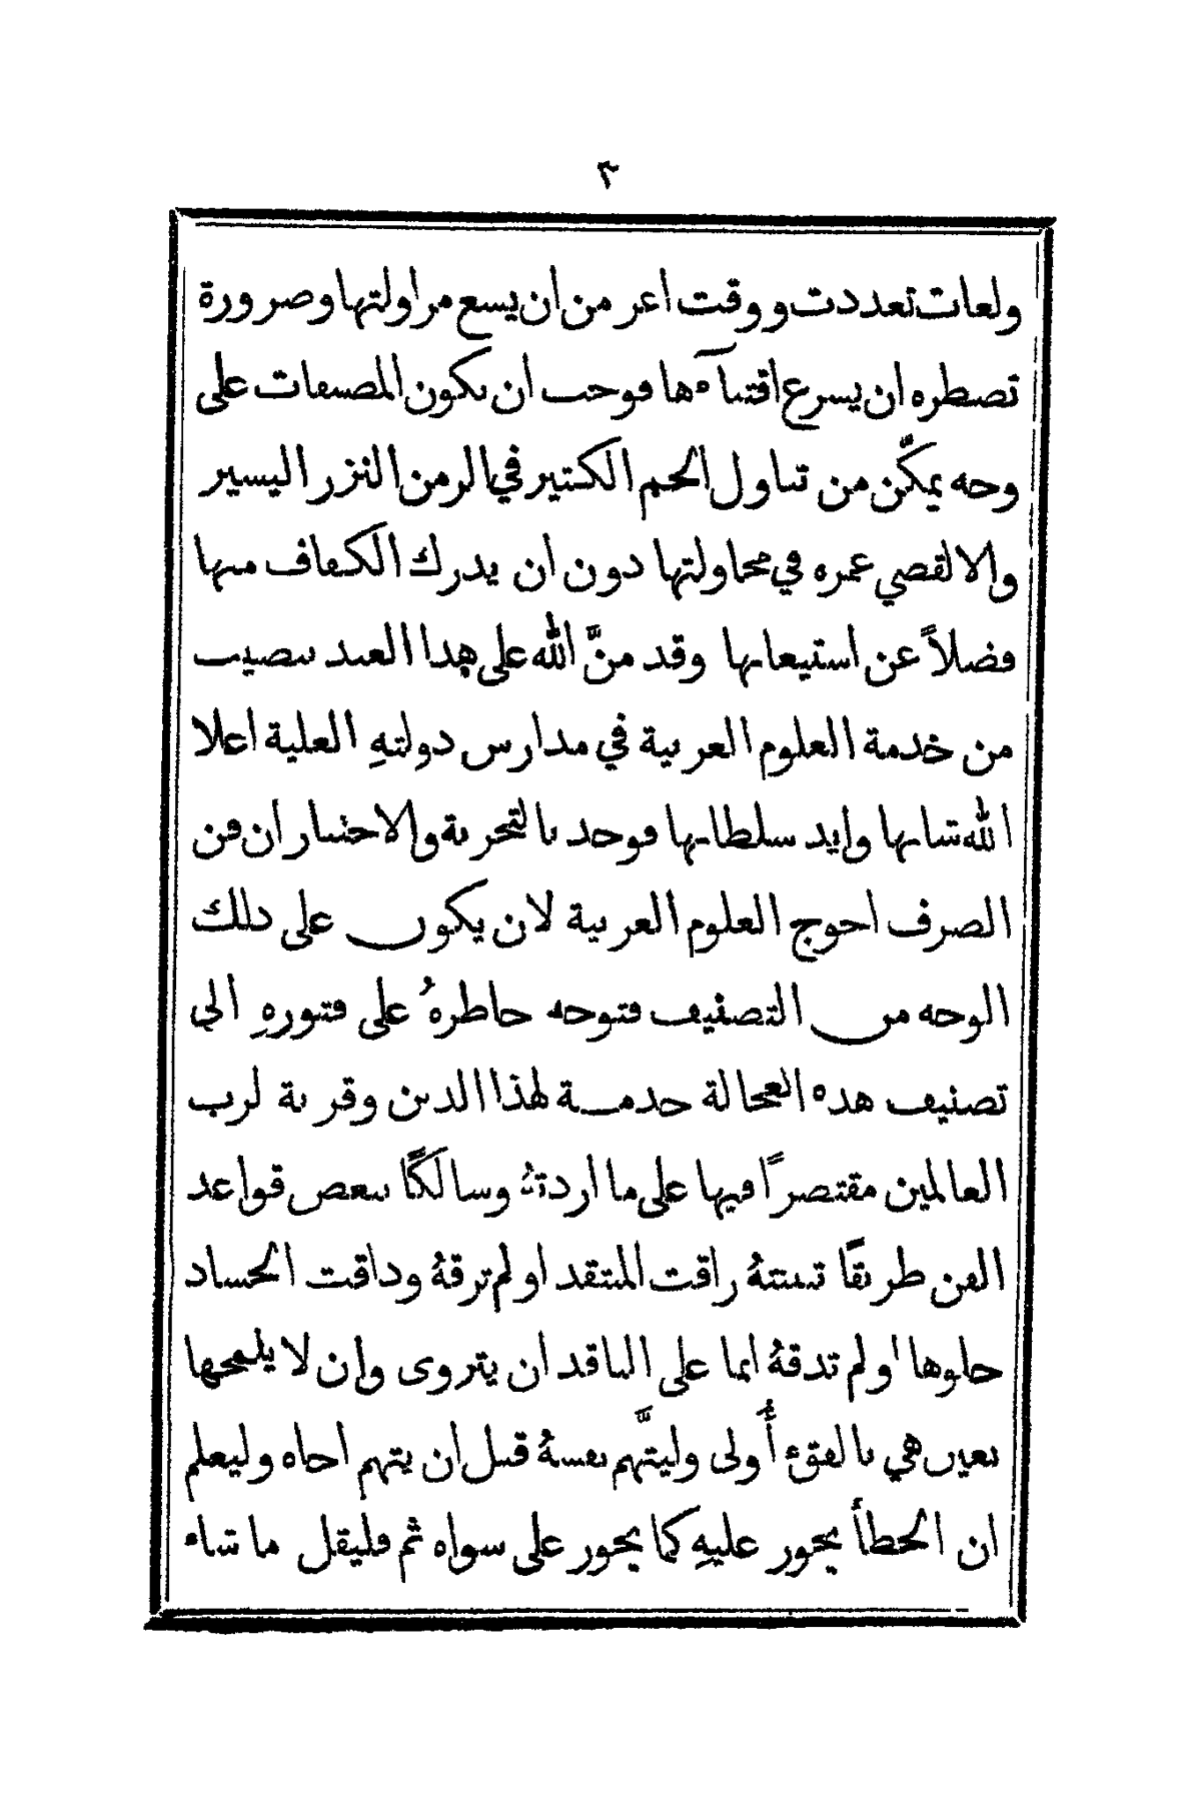 ٣
ولغات تعددت ووقت اعز من ان يسع مزاولتها وضرورة
تضطره ان يسرع اقتناآءها فوجب ان تكون المصنفات على
وجه يمكّن من تناول الجم الكثير في الزمن النزر اليسير
والا لقضي عمره في محاولتها دون ان يدرك الكفاف منها
فضلاً عن استيعابها وقد منَّ الله على هذا العبد بنصيب
من خدمة العلوم العربية في مدارس دولتهِ العلية اعلا
الله شانها وايد سلطانها فوجد بالتجربة والاختبار ان فن
الصرف احوج العلوم العربية لان يكون على ذلك
الوجه من التصنيف فتوجه خاطرهُ على فتورهِ الى
تصنيف هذه العجالة خدمة لهذا الدين وقربة لرب
العالمين مقتصرًا فيها على ما اردتهُ وسالكًا ببعض قواعد
الفن طريقًا تبينتهُ راقت المنتقد او لم ترقهُ وذاقت الحساد
حلوها او لم تذقهُ انما على الناقد ان يتروى وان لا يلمحها
بعين هي بالفقء أُولى وليتَّهم نفسهُ قبل ان يتهم اخاه وليعلم
ان الخطأ يجوز عليهِ كما يجوز على سواه ثم فليقل ما شاء